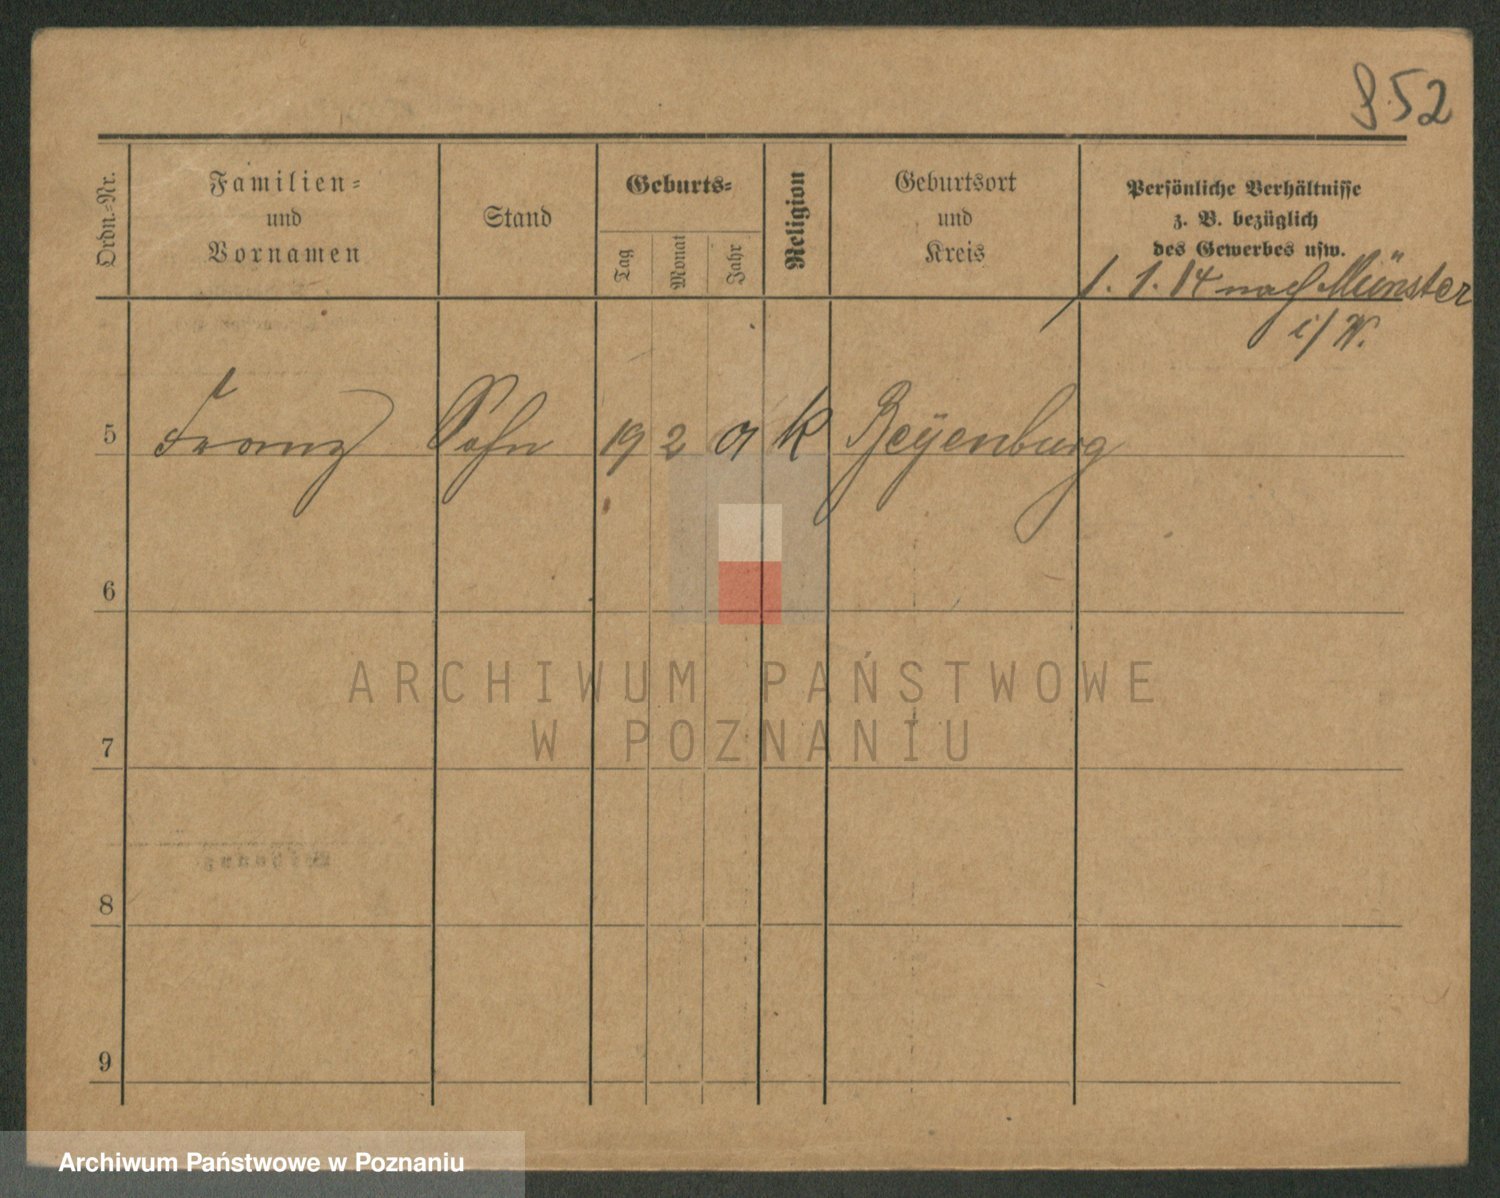 S. 52
Ordn.-Nr.
Familien-
und
Vornamen
Stand
Geburts-
Tag
Monat
Jahr
Religion
Geburtsort
und
Kreis
Persönliche Verhältnisse
z. B. bezüglich
des Gewerbes usw.
1. 1. 14 nach Münster
i/W.
5 Franz Sohn 19 2 01 k Beÿenburg
6
ARCHIWUM PAŃSTWOWE
W POZNANIU
7
8
9
Archiwum Państwowe w Poznaniu